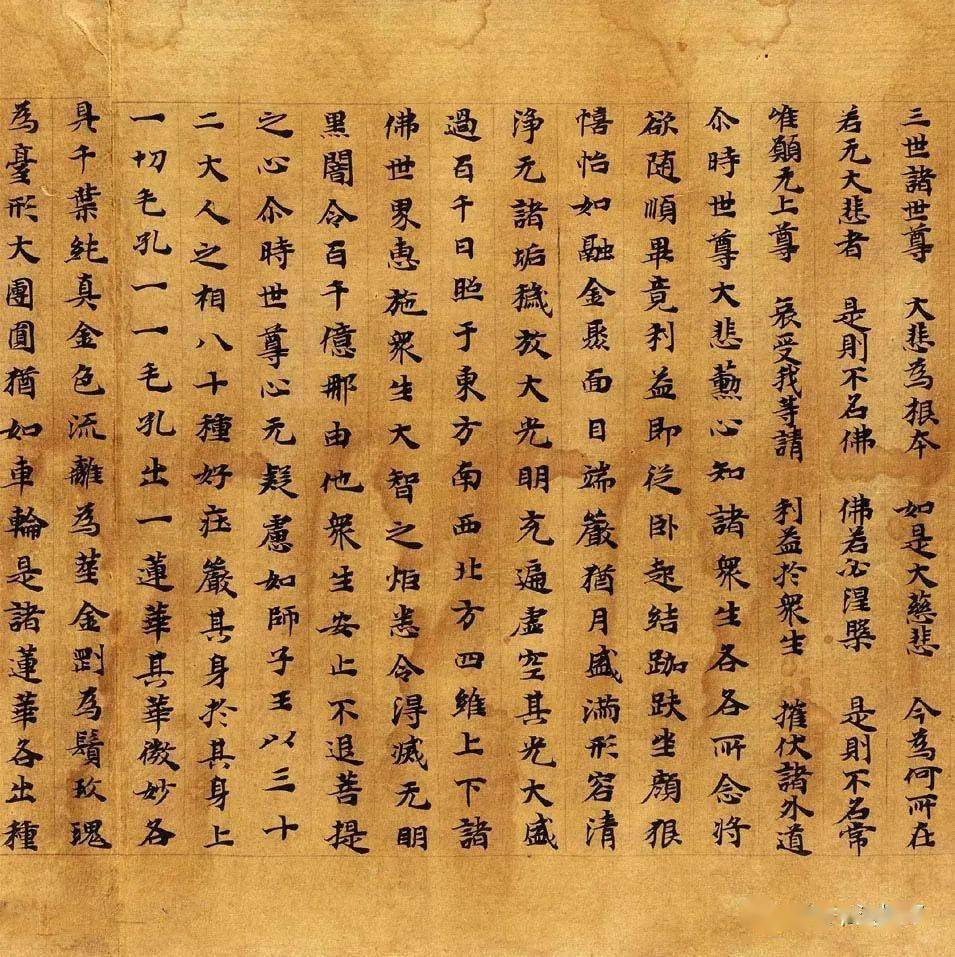 三世諸世尊　大悲為根本　如是大慈悲　今為何所在
若无大悲者　是則不名佛　佛若必涅槃　是則不名常
唯願无上尊　哀受我等請　利益於衆生　摧伏諸外道
尒時世尊大悲勳心知諸衆生各各所念將
欲随順畢竟利益即從卧起結跏趺坐顔狠
憘怡如融金聚面目端嚴猶月盛滿形容清
淨无諸垢穢放大光明充遍虛空其光大盛
過百千日照于東方南西北方四維上下諸
佛世界惠施衆生大智之炬悉令得滅无明
黑闇令百千億那由他衆生安止不退菩提
之心尒時世尊心无疑慮如師子王以三十
二大人之相八十種好莊嚴其身於其身上
一切毛孔一一毛孔出一蓮華其華微妙各
具千葉純真金色流離為莖金剛為鬚玫瑰
為臺形大團圓猶如車輪是諸蓮華各出種